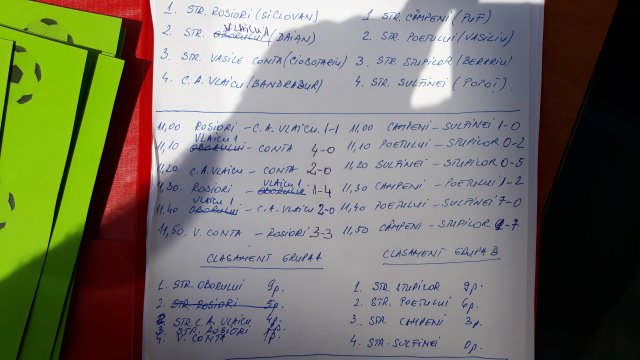 1. STR. ROSIORI (SICLOVAN)
2. STR. OBORULUI VLAICU 1 (DAIAN)
3. STR. VASILE CONTA (CIOBOTARIU)
4. C.A. VLAICU (BANDRABUR)
1. STR. CÂMPENI (PUT)
2. STR. POETULUI (VASILIU)
3. STR. STUPILOR (BERARIU)
4. STR. SULTINEI (POPOI)
11,00 ROSIORI - C.A. VLAICU 1-1
11,10 OBORULUI VLAICU 1 - CONTA 4-0
11,20 C.A. VLAICU - CONTA 2-0
11,30 ROSIORI - OBORULUI VLAICU 1 1-4
11,40 OBORULUI VLAICU 1 - C.A. VLAICU 2-0
11,50. V. CONTA - ROSIORI 3-3
11,00 CAMPENI - SULTINEI 1-0
11,10 POETULUI - STUPILOR 0-2
11,20 SULTINEI - STUPILOR 0-5
11,30 CAMPENI - POETULUI 1-2
11,40 POETULUI - SULTINEI 7-0
11,50 CÂMPENI - STUPILOR -7
CLASAMENT GRUPA A
1. STR. OBORULUI 9p.
2. STR. ROSIORI 5p.
2 STR C.A. VLAICU 4p.
3 STR. ROSIORI
4. V. CONTA 1p.
CLASAMENT GRUPA B
1. STR STUPILOR 9p.
2. STR. POETULUI 6p.
3. STR. CAMPENI 3p.
4. STR. SULTINEI 0p.